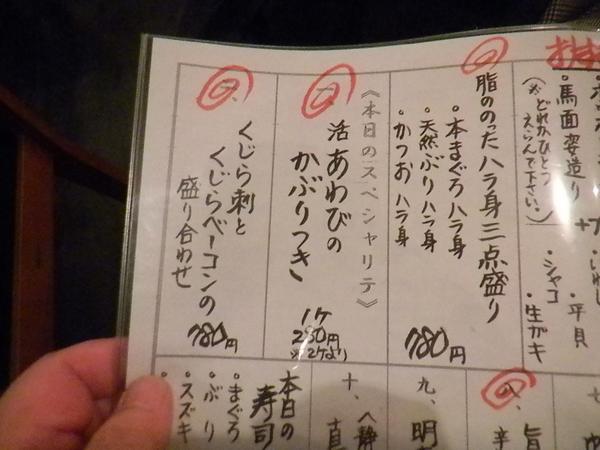 ・馬面姿造り
(※どれかひとつ
えらんで下さい。)
・平貝
・シャコ
・生ガキ
一、
脂ののったハラ身三点盛り
・本まぐろハラ身
・天然ぶりハラ身
・かつおハラ身
780円
《本日のスペシャリテ》
二、
活あわびの
かぶりつき
1ケ
280円
※2ケより
三、
くじら刺と
くじらベーコンの
盛り合わせ
780円
七、
八、
旨
辛
九、
明
十、
本日の
寿司
・まぐろ
・ぶり
・スズキ